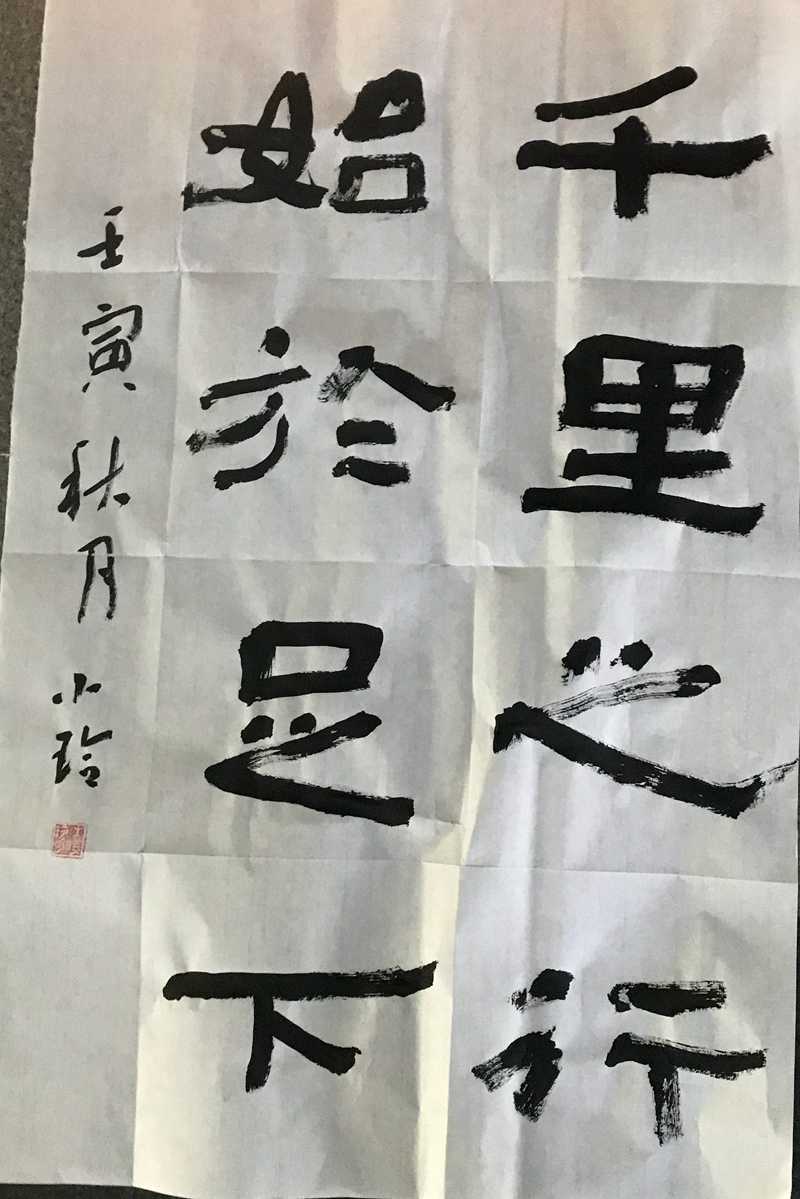 千里之行
始於足下
壬寅秋月 小玲